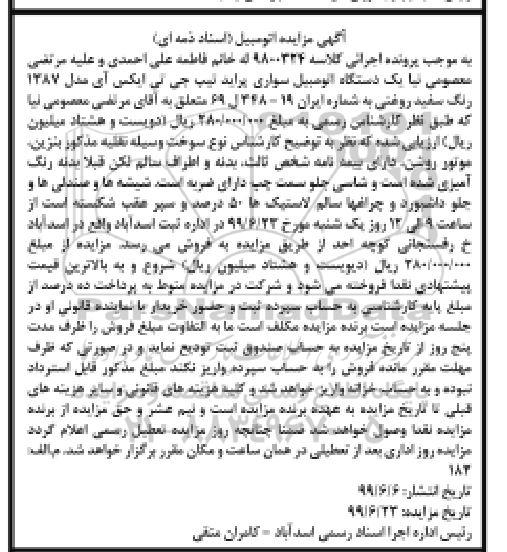 آگهی مزایده اتومبیل (اسناد ذمه ای)
به موجب پرونده اجرائی کلاسه ۹۸۰۰۳۲۴ له خانم فاطمه علی احمدی و علیه مرتضی
معصومی نیا یک دستگاه اتومبیل سواری پراید تیپ جی تی ایکس آی مدل ۱۳۸۷
رنگ سفید روغنی به شماره ایران ۱۹ - ۳۴۸ ل ۶۹ متعلق به آقای مرتضی معصومی نیا
که طبق نظر کارشناس رسمی به مبلغ ۲۸۰/۰۰۰/۰۰۰ ریال (دویست و هشتاد میلیون
ریال) ارزیابی شده که نظر به توضیح کارشناس نوع سوخت وسیله نقلیه مذکور بنزین،
موتور روشن، دارای بیمه نامه شخص ثالث، بدنه و اطراف سالم لکن قبلا بدنه رنگ
آمیزی شده است و شاسی جلو سمت چپ دارای ضربه است. شیشه ها و صندلی ها و
جلو داشبورد و چراغها سالم لاستیک ها ۵۰ درصد و سپر عقب شکسته است از
ساعت ۹ الی ۱۲ روز یک شنبه مورخ ۹۹/۶/۲۳ در اداره ثبت اسدآباد واقع در اسدآباد
خ رفسنجانی کوچه احد از طریق مزایده به فروش می رسد. مزایده از مبلغ
۲۸۰/۰۰۰/۰۰۰ ریال (دویست و هشتاد میلیون ریال) شروع و به بالاترین قیمت
پیشنهادی نقدا فروخته می شود و شرکت در مزایده منوط به پرداخت ده درصد از
مبلغ پایه کارشناسی به حساب سپرده ثبت و حضور خریدار یا نماینده قانونی او در
جلسه مزایده است برنده مزایده مکلف است ما به التفاوت مبلغ فروش را ظرف مدت
پنج روز از تاریخ مزایده به حساب صندوق ثبت تودیع نماید و در صورتی که ظرف
مهلت مقرر مانده فروش را به حساب سپرده واریز نکند مبلغ مذکور قابل استرداد
نبوده و به حساب خزانه واریز خواهد شد و کلیه هزینه های قانونی و سایر هزینه های
قبلی تا تاریخ مزایده به عهده برنده مزایده است و نیم عشر و حق مزایده از برنده
مزایده نقدا وصول خواهد شد ضمنا چنانچه روز مزایده تعطیل رسمی اعلام گردد
مزایده روز اداری بعد از تعطیلی در همان ساعت و مکان مقرر برگزار خواهد شد. م.الف:
۱۸۳
تاریخ انتشار: ۹۹/۶/۶
تاریخ مزایده: ۹۹/۶/۲۳
رئیس اداره اجرا اسناد رسمی اسدآباد - کامران متقی